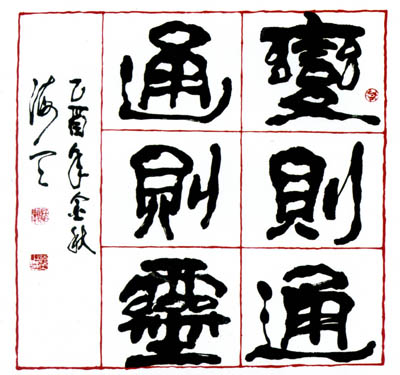 變則通
通則靈
乙酉年金秋
海